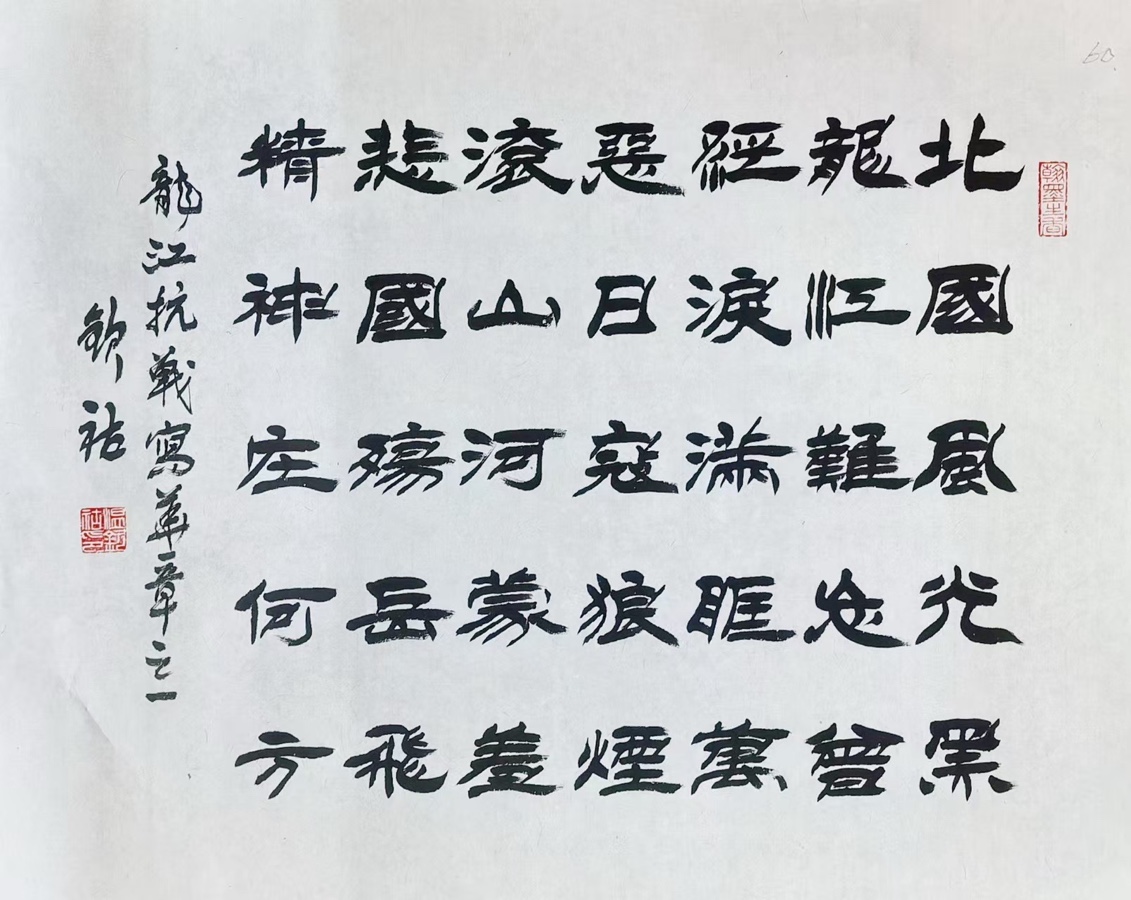 60
北國風光黑
龍江難忘曾
經淚滿眶萬
惡日寇狼煙
滾山河蒙羞
悲國殤岳飛
精神在何方
龍江抗戰寫華章之一
欽祜